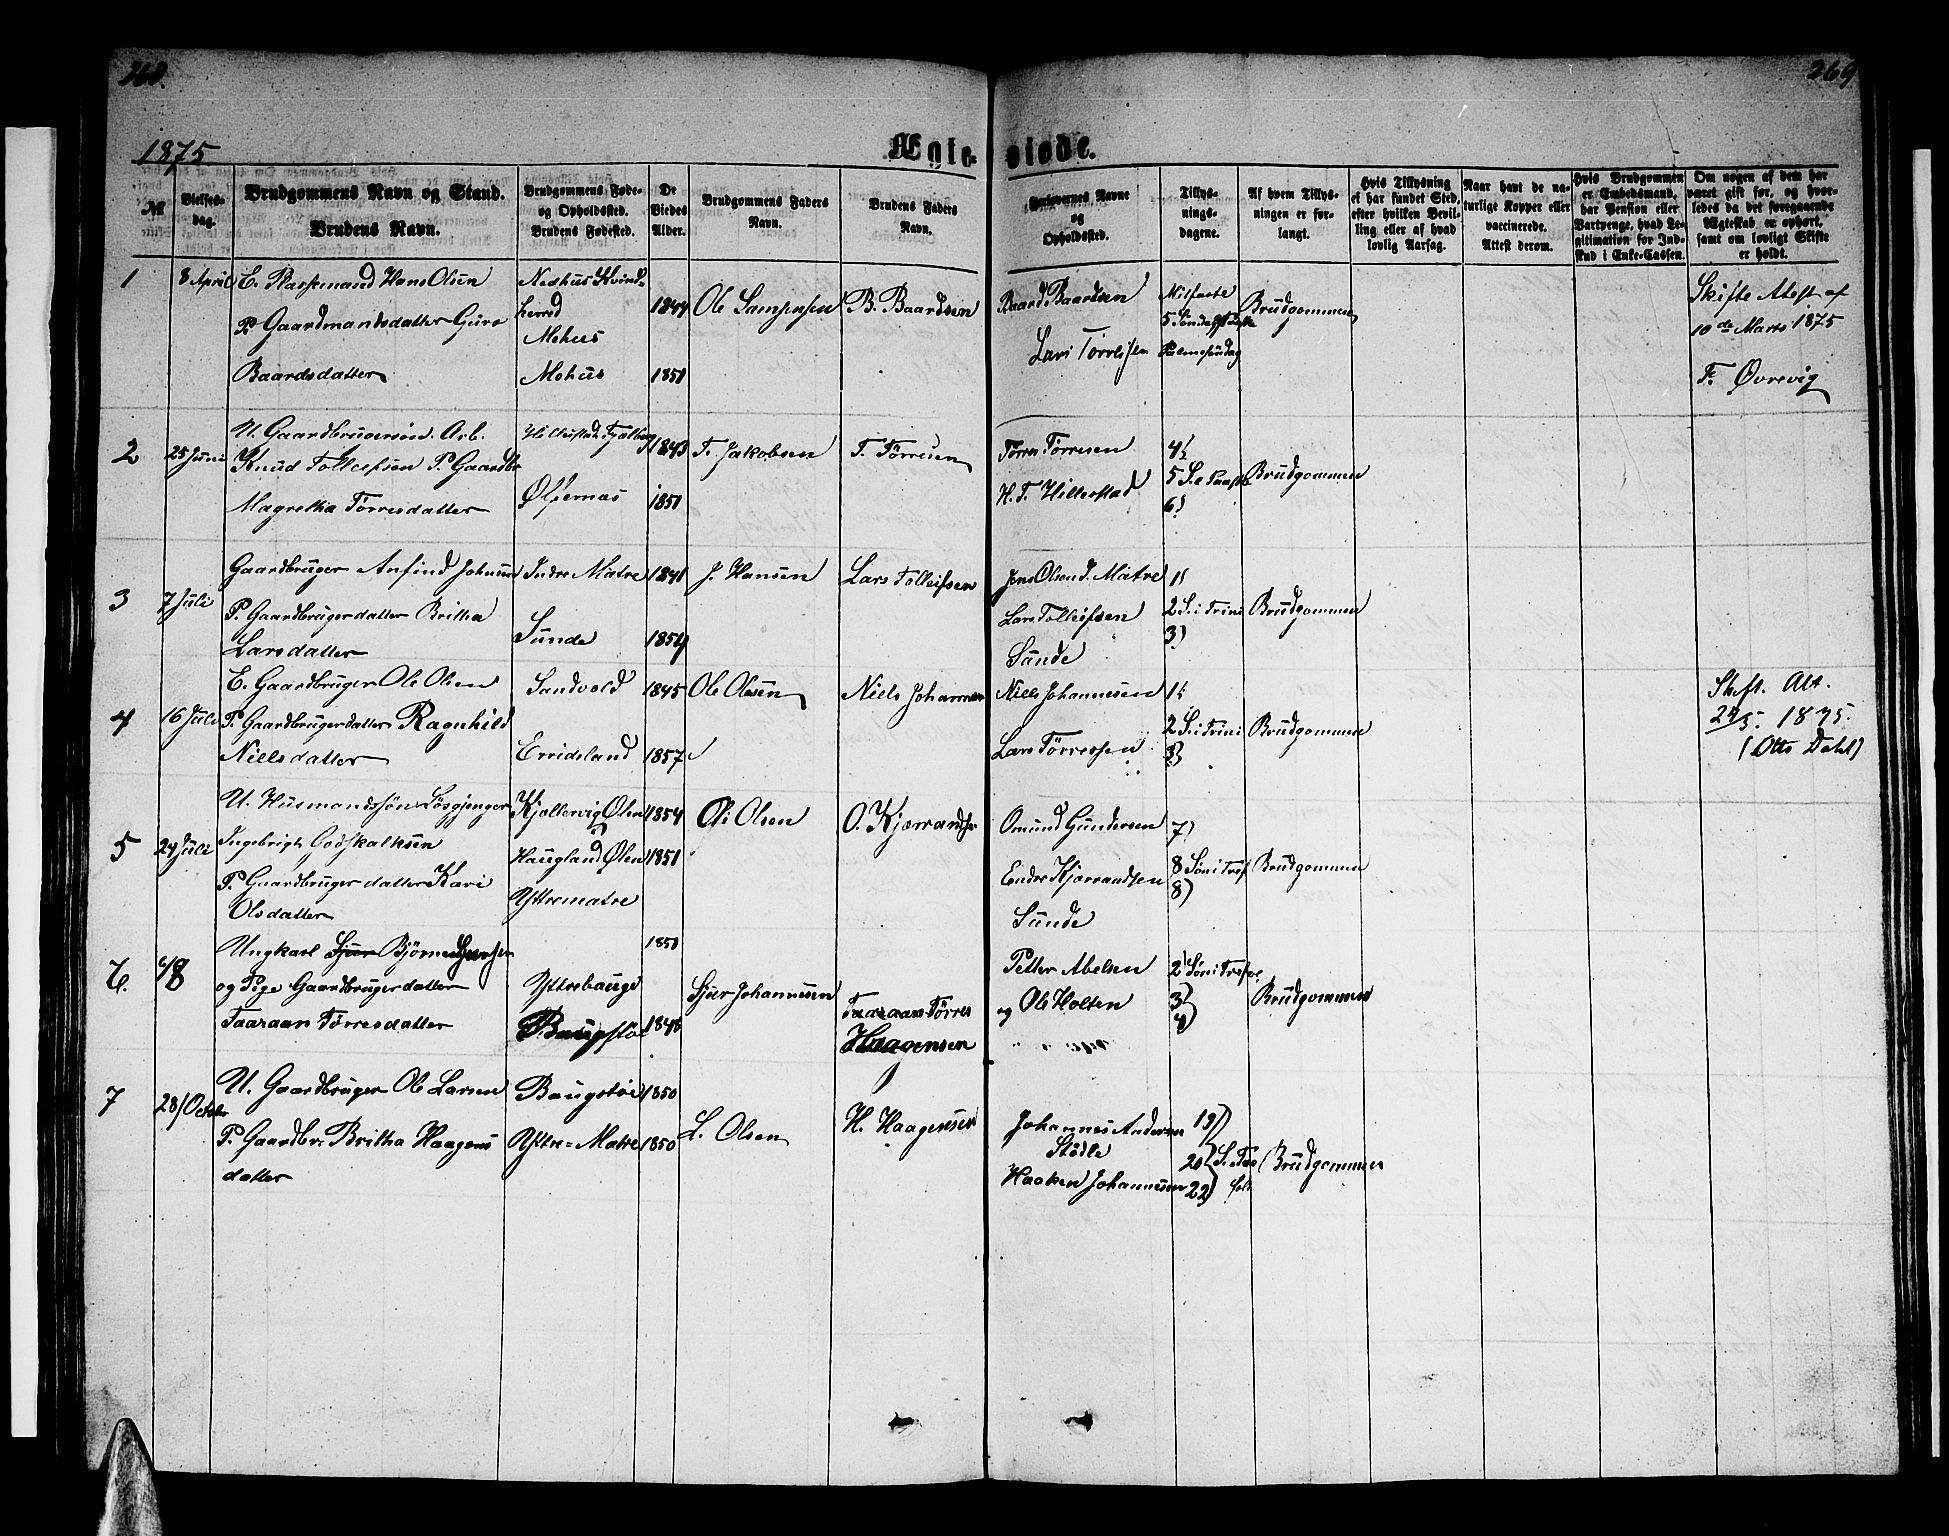 268.
269
1875
Ægte-viede.
№
Vielses-dag.
Brudgommens Navn og Stand.
Brudens Navn.
Brudgommens Føde- og Opholdssted.
Brudens Fødested.
De Viedes Alder.
Brudgommens Faders Navn.
Brudens Faders Navn.
Forlovernes Navne og Opholdssted.
Tillysnings-dagene.
Af hvem Tillysningen er forlangt.
Hvis Tillysning ei har fundet Sted, efter hvilken Bevilling eller af hvad lovlig Aarsag.
Naar havt de naturlige Kopper eller vaccinerede. Attest derom.
Hvis Brudgommen er Embedsmand, har Pension eller Vartpenge, hvad Legitimation for Indskud i Enke-Cassen.
Om nogen af dem har været gift før, og hvorledes da det foregaaende Ægteskab er ophørt, samt om lovligt Skifte er holdt.
1
8 April
E. Hans Olsen
P. Gaardmandsdatter Guro
Baardsdatter
Kvind-
herred
Mehus
Mehus
1844
1851
Ole Samsonsen
B. Baardsen
Baard Baardsen
5 Søndag i Faste
Palmesøndag
Brudgommen
Skifte Atest af
10de Marts 1875
Øvrevig
2
25 Juni
U. Gaardbrugersøn. Arb.
Knud Tollefsen P. Gaardbr
Magretha Tørresdatter
Ølfernas
1843
1851
T. Jakobsen
T. Tørresen
Tørres Tørresen
H. T. Hillestad
4)
5 S. e Paaske
6)
Brudgommen
3
7 Juli
Gaardbruger Anfind Johnsen
P. Gaardbrugerdatter Britha
Larsdatter
Indre Matre
Sunde
1841
1854
J. Hansen
Lars Tolleifsen
Jens Olsen I. Matre
Lars Tolleifsen
Sunde
1)
2 S. i Trini
3)
Brudgommen
4
16 Juli
E. Gaardbruger Ole Olsen
P. Gaardbrugerdatter Ragnhild
Nielsdatter
Sandvold
Erridsland
1845
1857
Ole Olsen
Niels Johannes
Niels Johannesen
Lars Tørressen
1)
2 S. i Trini
3)
Brudgommen
Skift. Att.
1875.
(Otto Dahl)
5
24 Juli
U. Husmandssøn Løsgjenger
Ingebrigt Godskalksen
P. Gaardbrugerdatter Kari
Olsdatter
Kjellervig Ølen
Haugland Ølen
Yttrematre
1854
1851
Ole Olsen
O. Kjærrandsen
Omund Gundersen
Endre Kjærrandsen
Sunde
7)
8 Søn i Tref
8)
Brudgommen
6.
Ungkarl Sjur Bjørne Sjursen
og Pige Gaardbrugerdatter
Taaraan Tørresdatter
Yttrebauge
Baugstøe
1851
1848
Sjur Johannesen
Taaraan Tørres
Haagensen
Petter Abelsen
og Ole Holten
2) Søn i Tref
3)
4)
Brudgommen
7
28/October
U. Gaardbruger Ole Larsen
P. Gaardbr. Britha Haagens
datter
Baugstøe
Yttre=Matre
1850
1850
L. Olsen
H. Haagensen
Johannes Andersen
Stødle
Haaken Johannesen
19)
20 S.
22)
Brudgommen